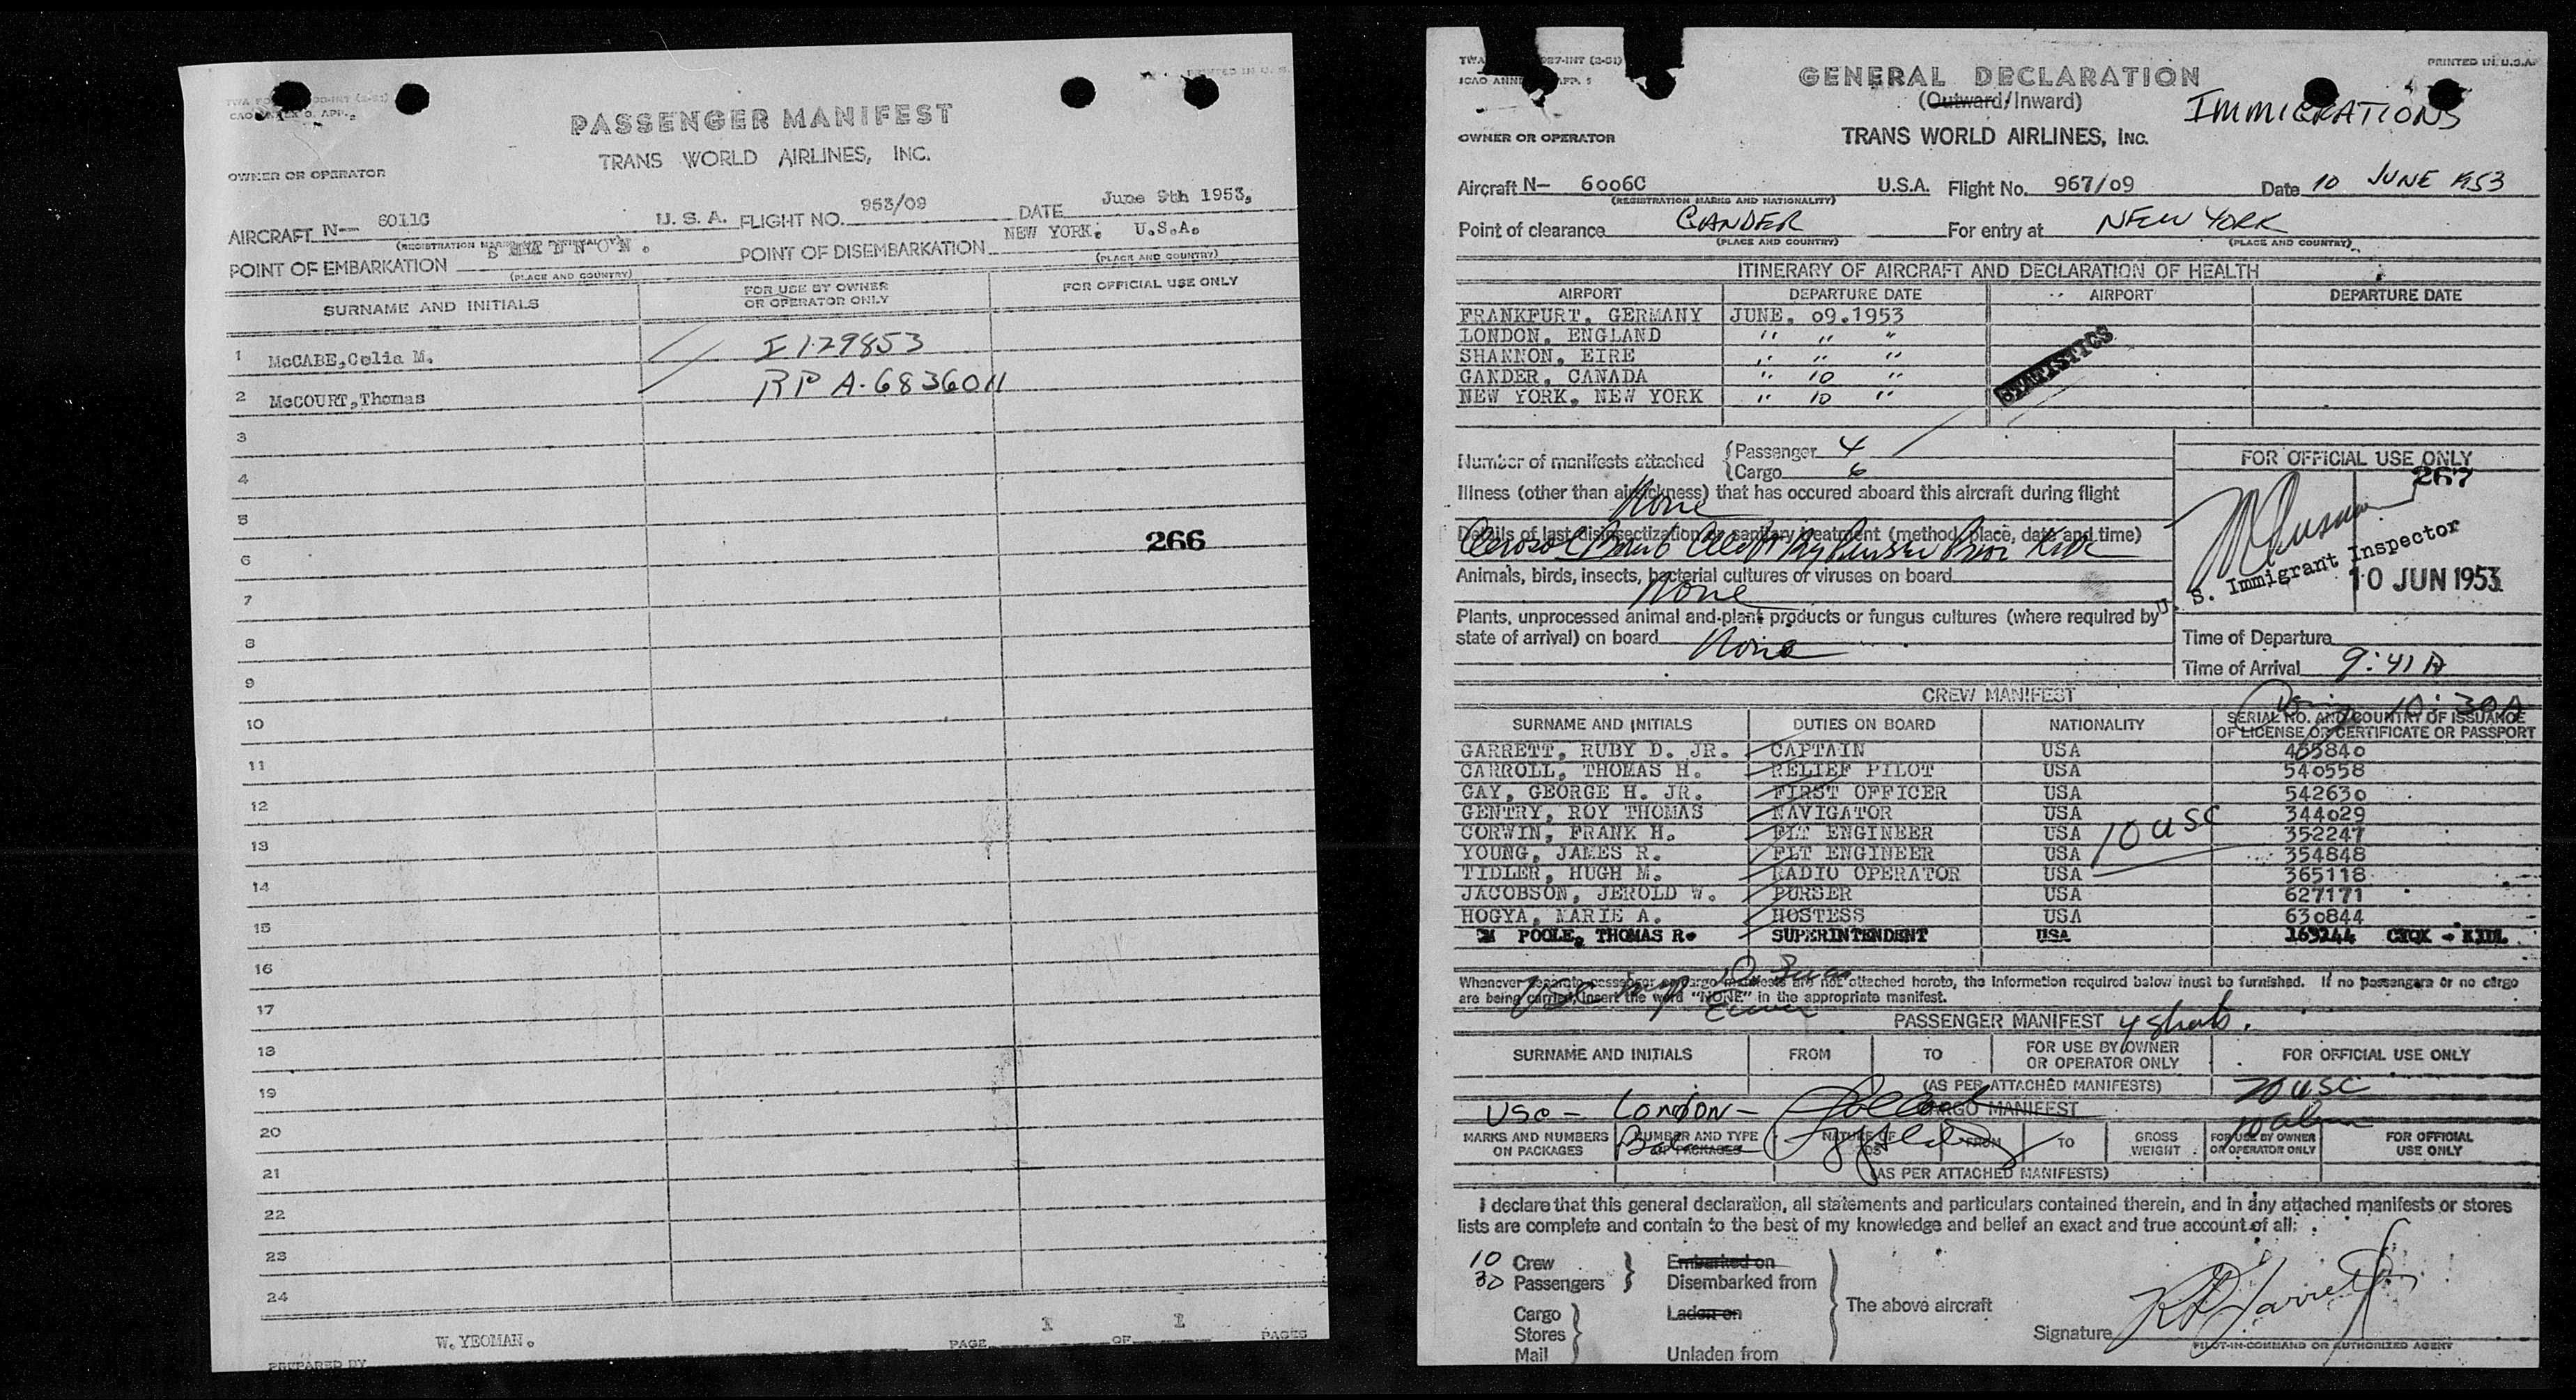 PRINTED IN U. S.
PASSENGER MANIFEST
TRANS WORLD AIRLINES, INC.
OWNER OR OPERATOR
AIRCRAFT N— 6011C U. S. A. FLIGHT NO. 953/09 DATE June 9th 1953,
(REGISTRATION MARKS AND NATIONALITY)
POINT OF EMBARKATION S H A N N O N . POINT OF DISEMBARKATION NEW YORK. U.S.A.
(PLACE AND COUNTRY) (PLACE AND COUNTRY)
SURNAME AND INITIALS FOR USE BY OWNER OR OPERATOR ONLY FOR OFFICIAL USE ONLY
1 McCABE,Celia M. I 129853
2 McCOURT,Thomas RP A-6836011
3
4
5
266
6
7
8
9
10
11
12
13
14
15
16
17
18
19
20
21
22
23
24
W. YEOMAN.
PREPARED BY
PAGE 1 OF 1 PAGES
PRINTED IN U.S.A.
GENERAL DECLARATION
(Outward/Inward)
IMMIGRATIONS
OWNER OR OPERATOR
TRANS WORLD AIRLINES, INC.
Aircraft N— 6006C U.S.A. Flight No. 967/09 Date 10 JUNE 1953
(REGISTRATION MARKS AND NATIONALITY)
Point of clearance GANDER For entry at NEW YORK
(PLACE AND COUNTRY) (PLACE AND COUNTRY)
ITINERARY OF AIRCRAFT AND DECLARATION OF HEALTH
AIRPORT DEPARTURE DATE AIRPORT DEPARTURE DATE
FRANKFURT, GERMANY JUNE, 09.1953
LONDON, ENGLAND " " "
SHANNON, EIRE " " "
GANDER, CANADA " 10 "
NEW YORK, NEW YORK " 10 "
STATISTICS
Number of manifests attached {Passenger 4
{Cargo 6
FOR OFFICIAL USE ONLY
267
Illness (other than airsickness) that has occured aboard this aircraft during flight
None
Details of last disinsectization or sanitary treatment (method, place, date and time)
Aerosol Bomb
Animals, birds, insects, bacterial cultures or viruses on board
None
Plants, unprocessed animal and plant products or fungus cultures (where required by
state of arrival) on board None
U. S. Immigrant Inspector
10 JUN 1953
Time of Departure
Time of Arrival 9:41 A
10:30A
CREW MANIFEST
SURNAME AND INITIALS DUTIES ON BOARD NATIONALITY SERIAL NO. AND COUNTRY OF ISSUANCE OF LICENSE OR CERTIFICATE OR PASSPORT
GARRETT, RUBY D. JR. CAPTAIN USA 455840
CARROLL, THOMAS H. RELIEF PILOT USA 540558
GAY, GEORGE H. JR. FIRST OFFICER USA 542630
GENTRY, ROY THOMAS NAVIGATOR USA 344029
CORWIN, FRANK H. FLT ENGINEER USA 352247
10 USC
YOUNG, JAMES R. FLT ENGINEER USA 354848
TIDLER, HUGH M. RADIO OPERATOR USA 365118
JACOBSON, JEROLD W. PURSER USA 627171
HOGYA, MARIE A. HOSTESS USA 630844
POOLE, THOMAS R. SUPERINTENDENT USA 163244 CYQX - KIDL
Whenever separate passenger or cargo manifests are not attached hereto, the information required below must be furnished. If no passengers or no cargo
are being carried, insert the word "NONE" in the appropriate manifest.
PASSENGER MANIFEST 4 shets.
SURNAME AND INITIALS FROM TO FOR USE BY OWNER OR OPERATOR ONLY FOR OFFICIAL USE ONLY
(AS PER ATTACHED MANIFESTS) 20 USC
10 alien
USC - London -
CARGO MANIFEST
MARKS AND NUMBERS ON PACKAGES NUMBER AND TYPE OF PACKAGES NATURE OF GOODS FROM TO GROSS WEIGHT FOR USE BY OWNER OR OPERATOR ONLY FOR OFFICIAL USE ONLY
(AS PER ATTACHED MANIFESTS)
I declare that this general declaration, all statements and particulars contained therein, and in any attached manifests or stores
lists are complete and contain to the best of my knowledge and belief an exact and true account of all:
10 Crew Embarked on
30 Passengers Disembarked from
Cargo Laden on The above aircraft
Stores
Mail Unladen from
Signature R D Garrett Jr
PILOT-IN-COMMAND OR AUTHORIZED AGENT